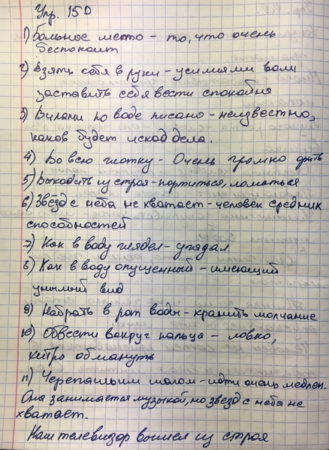 Упр. 150
1) больное место - то, что очень
беспокоит
2) взять себя в руки - усилиями воли
заставить себя вести спокойно
3) Вилами по воде писано - неизвестно,
каков будет исход дела.
4) Во всю глотку - Очень громко
5) Выходить из строя - портиться, ломаться
6) Звёзд с неба не хватает - человек средних
способностей
7) Как в воду глядел - угадал
8) Как в воду опущенный - имеющий
унылый вид
9) Набрать в рот воды - хранить молчание
10) Обвести вокруг пальца - ловко,
хитро обмануть
11) Черепашьим шагом - идти очень медлен.
Она занимается музыкой, но звёзд с неба не
хватает.
Наш телевизор вышел из строя